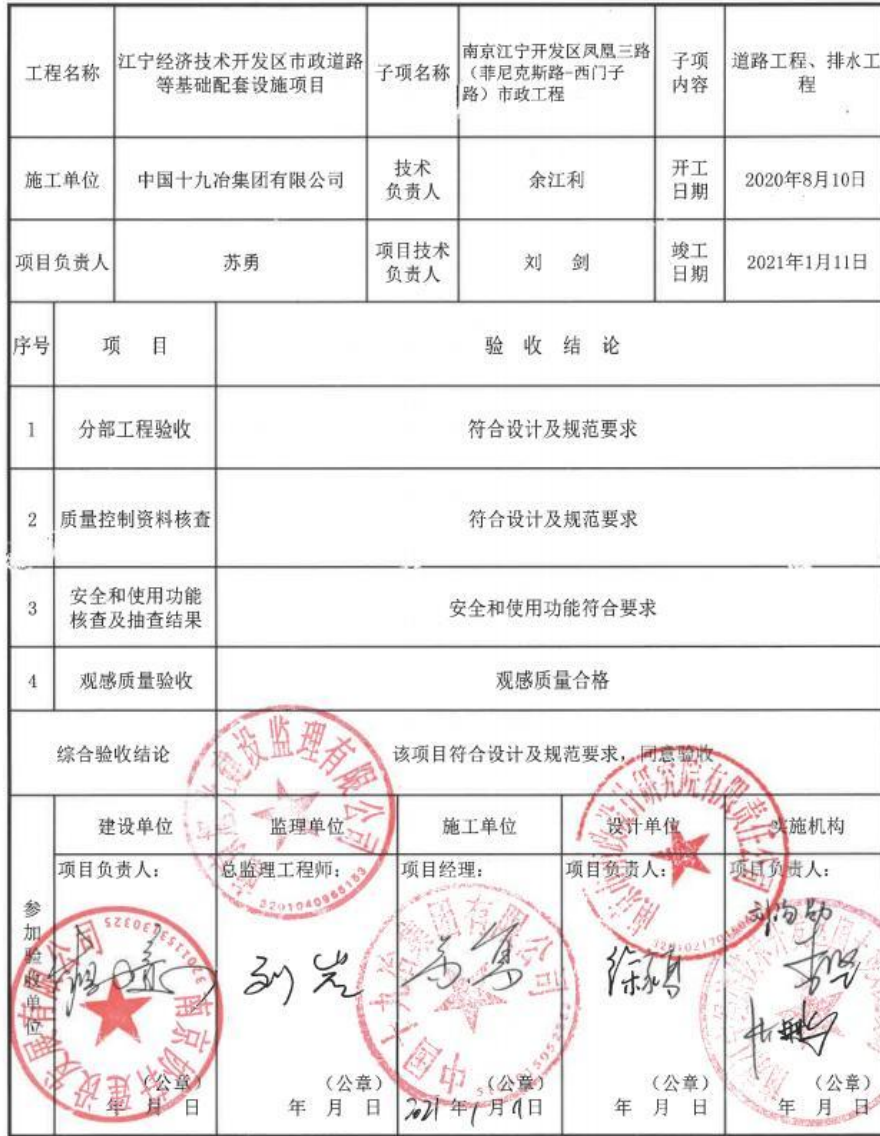 工程名称
江宁经济技术开发区市政道路
等基础配套设施项目
子项名称
南京江宁开发区凤凰三路
（菲尼克斯路-西门子
路）市政工程
子项
内容
道路工程、排水工
程
施工单位
中国十九冶集团有限公司
技术
负责人
余江利
开工
日期
2020年8月10日
项目负责人
苏勇
项目技术
负责人
刘 剑
竣工
日期
2021年1月11日
序号
项 目
验 收 结 论
1
分部工程验收
符合设计及规范要求
2
质量控制资料核查
符合设计及规范要求
3
安全和使用功能
核查及抽查结果
安全和使用功能符合要求
4
观感质量验收
观感质量合格
综合验收结论
该项目符合设计及规范要求，同意验收
参加验收单位
建设单位
监理单位
施工单位
设计单位
实施机构
项目负责人：
总监理工程师：
项目经理：
项目负责人：
项目负责人：
建设监理有限公司
3201040965153
研究院有限责任公司
刘岩
中国十九冶集团有限公司
（公章）
（公章）
（公章）
（公章）
（公章）
年 月 日
年 月 日
2021年1月11日
年 月 日
年 月 日